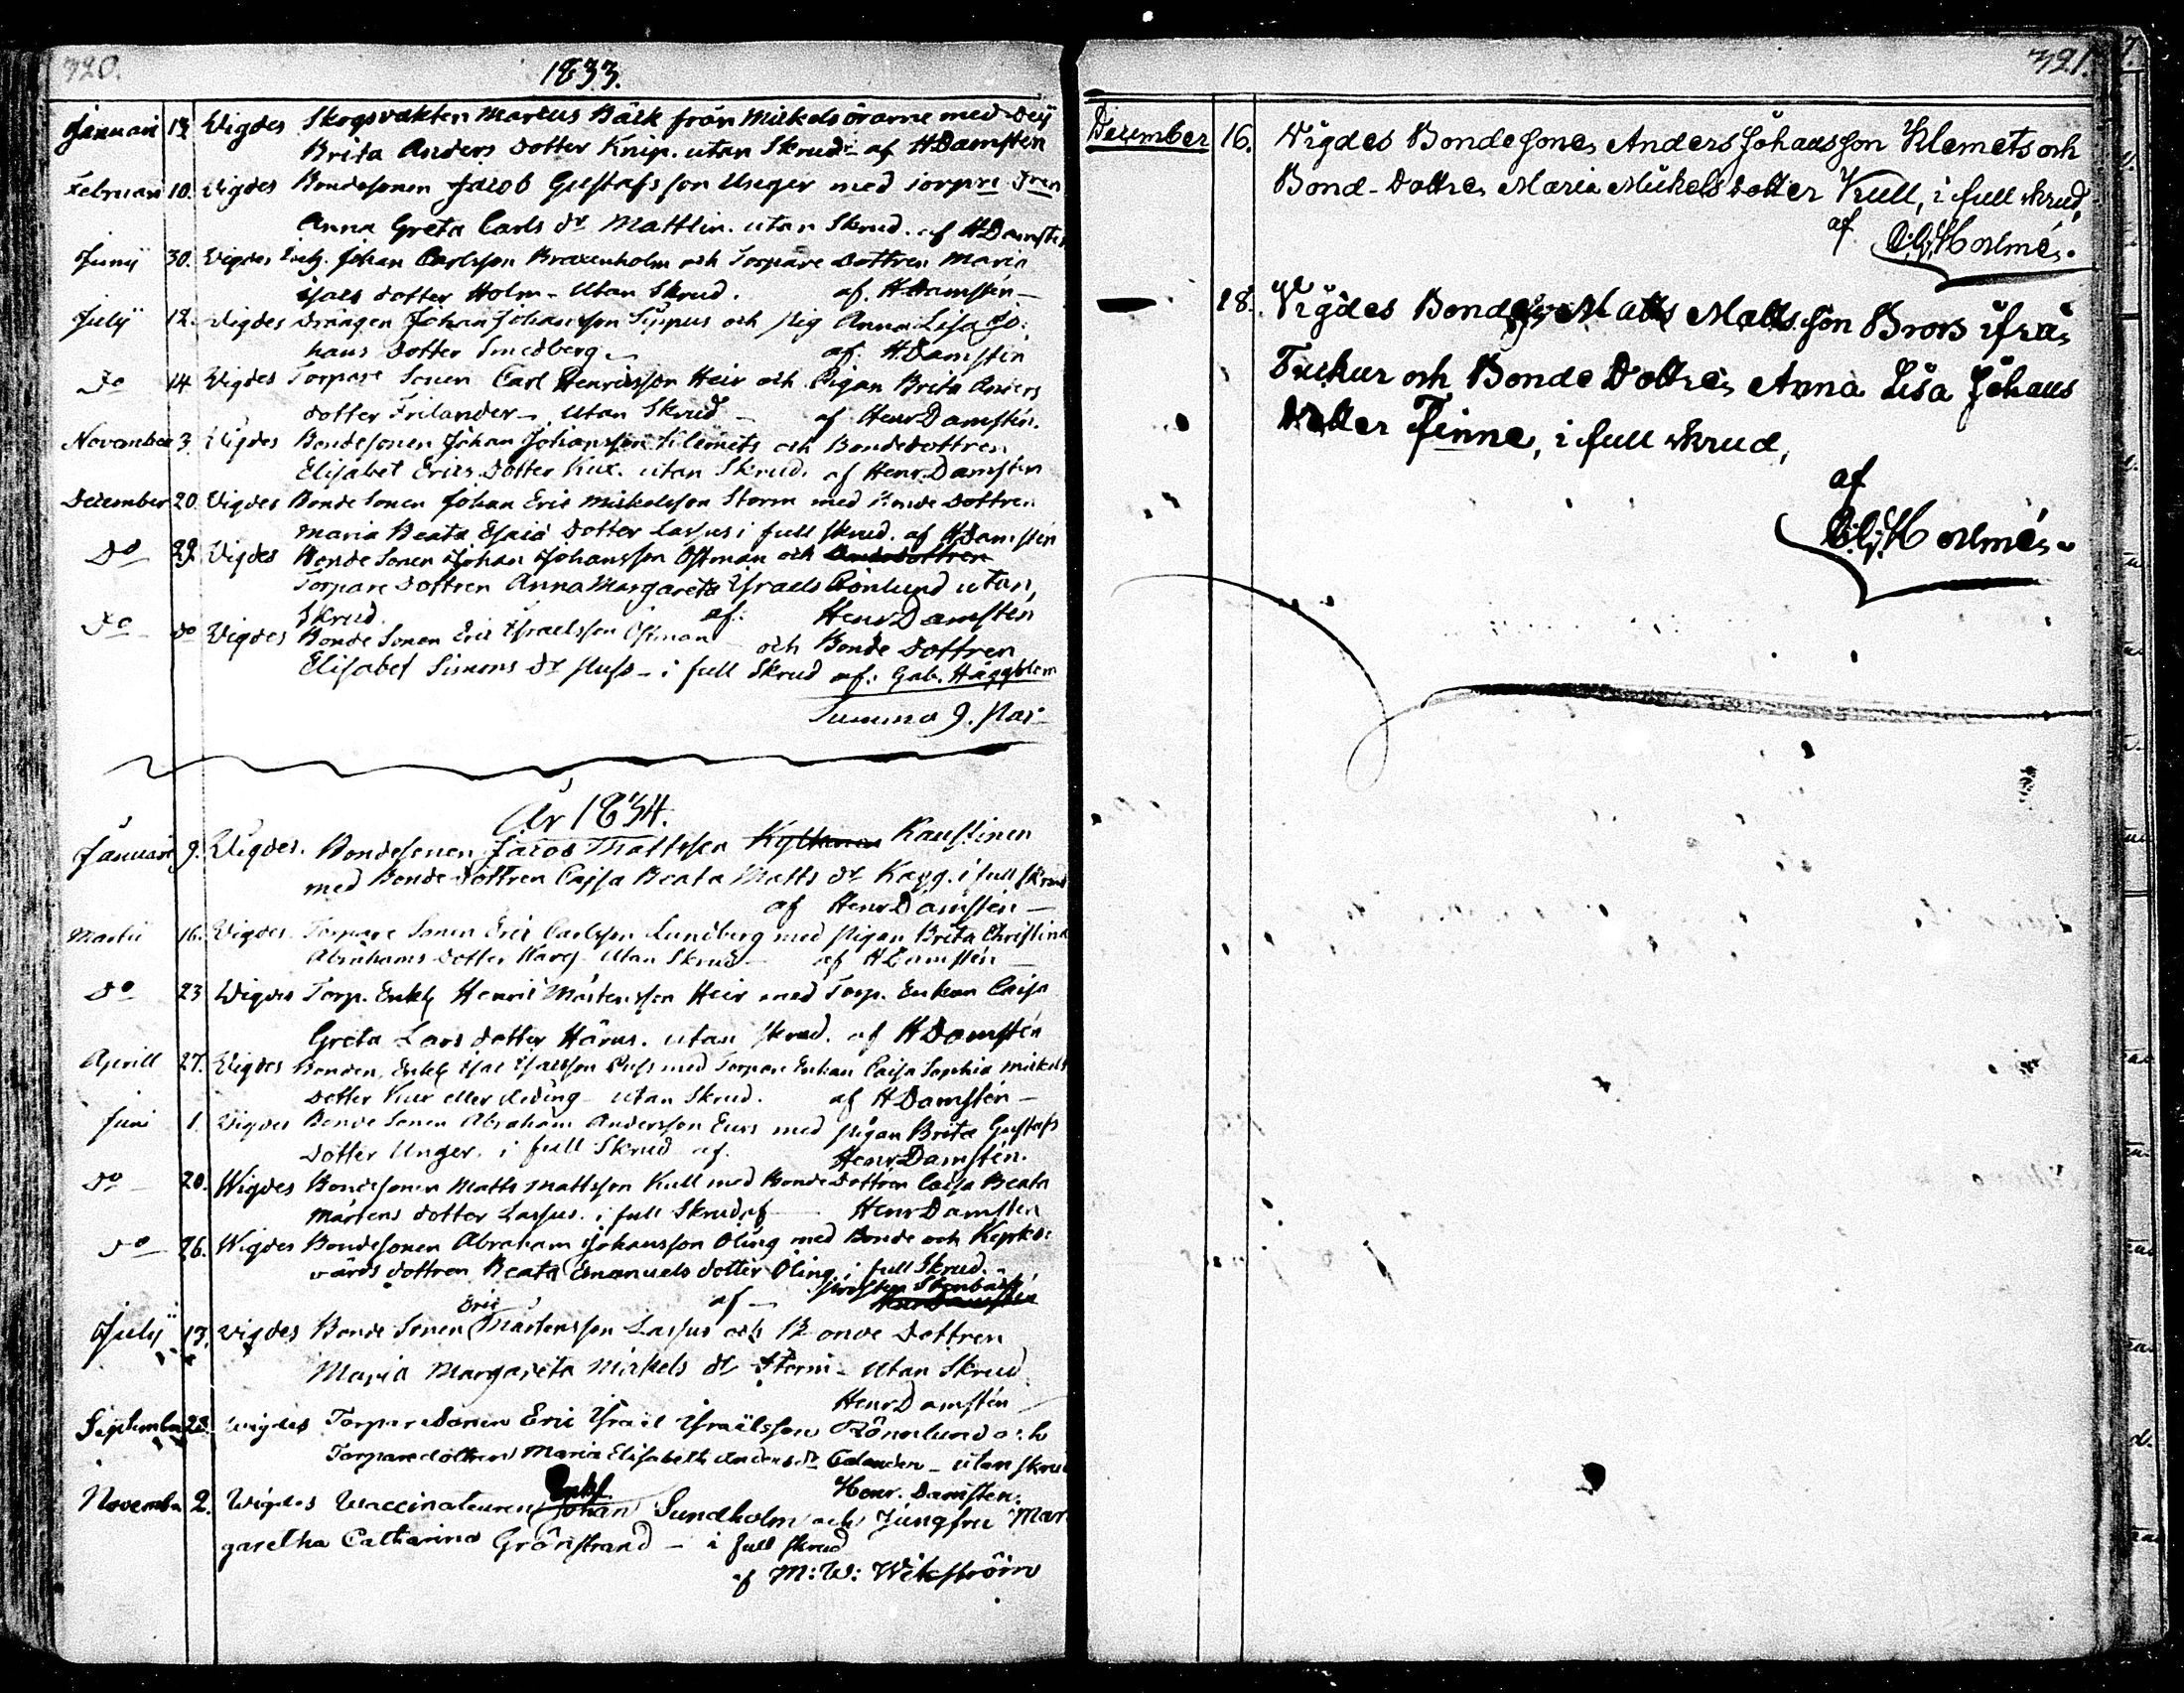 320.
1833.
Januari 13. Vigdes Skogsvakten Marcus Bäck från Mickelsörarne med
Brita Anders dotter Knip. utan Skrud af HDamstén
Februari 10. Vigdes Bondesonen Jacob Gustafsson Unger med Torpre
Anna Greta Carls dr Mattlin. utan Skrud. af HDamstén
Junij 30. Vigdes Enkl. Johan Carlsson Braxenholm och Torpare dottren Maria
Isacs dotter Holm - Utan Skrud. af. HDamstén -
Julij 12. Vigdes Drängen Johan Johansson Sippus och Pig Anna Lisa Jo:
hans dotter Smedberg - af. H.Damstén
Do 14. Vigdes Torpare Sonen Carl Henricsson Heir och Pigan Brita Anders
dotter Frilander - Utan Skrud - af Henr Damstén.
November 3. Vigdes Bondesonen Johan Johansson Klemets och Bondedottren
Elisabet Erics Dotter Kux. utan Skrud. af Henr. Damstén
December 20. Vigdes Bonde Sonen Johan Eric Mickelsson Storm med Bonde Dottren
Maria Beata Esaiæ Dotter Lassus i full skrud. af HDamstén
Do 29. Vigdes Bonde Sonen Johan Johansson Östman och
Torpare Dottren Anna Margareta Israels Rönlund utan
Skrud. af: Henr Damstén
Do do Vigdes Bonde Sonen Eric Israelsson Östman och Bonde Dottren
Elisabet Simons dr Puss - i full Skrud af: Gab. Häggblom
Summa 9. Par
År 1834.
Januari 9. Vigdes. Bondesonen Jacob Mattsson Kaustinen
med Bonde-dottren Cajsa Beata Matts dr Kagg. i full skrud
af Henr Damstén -
Martii 16. Vigdes Torpare Sonen Eric Carlsson Lundberg med Pigan Brita Christina
Abrahams dotter Harg - Utan Skrud - af HDamstén -
Do 23 Wigdes Torp. Enkl Henric Mårtensson Heir med Torp. Enkan Caisa
Greta Lars dotter Härus. utan skrud. af HDamstén
Aprill 27. Vigdes Bonden, Enkl Isac Isacsson Puss med Torpare Enkan Caisa Sophia Mickels
Dotter Kux eller Reding - utan Skrud. af HDamstén -
Juni 1. Vigdes Bonde Sonen Abraham Andersson Eurs med Pigan Brita Gustafs
Dotter Unger. i full Skrud af. Henr Damstén.
Do - 20. Wigdes Bondesonen Matts Mattsson Kull med Bonde Dottren Caisa Beata
Mårtens dotter Lassus. i full Skrud af Henr Damstén
Do 26. Wigdes Bondesonen Abraham Johansson Öling med Bonde och Kyrko:
värds dottren Beata Emanuels dotter Öling i full Skrud.
af - Prosten Stenbäck
Julij 13. Vigdes Bonde Sonen Eric Mårtensson Lassus och Bonde Dottren
Maria Margareta Mickels dr Storm - Utan Skrud
Henr Damstén
September 28. Wigdes Torparesonen Eric Israel Israëlsson Rönnlund och
Torparedottren Maria Elisabeth Anders dr Calander - utan skrud
Henr. Damstén.
November 2. Wigdes Vaccinateuren Enkl. Johan Sundholm och Jungfru Mar
garetha Catharina Grönstrand - i full skrud
af M:W: Wikström
321.
December 16. Vigdes Bondesonen Anders Johansson Klemets och
Bond-Dottren Maria Mickels dotter Kull, i full skrud,
af C.G. Holmén.
— 28. Vigdes Bonden Matts Mattsson Brors ifrån
Tuckur och Bonde Dottren Anna Lisa Johans
Dotter Finne, i full skrud,
af
C.G. Holmén